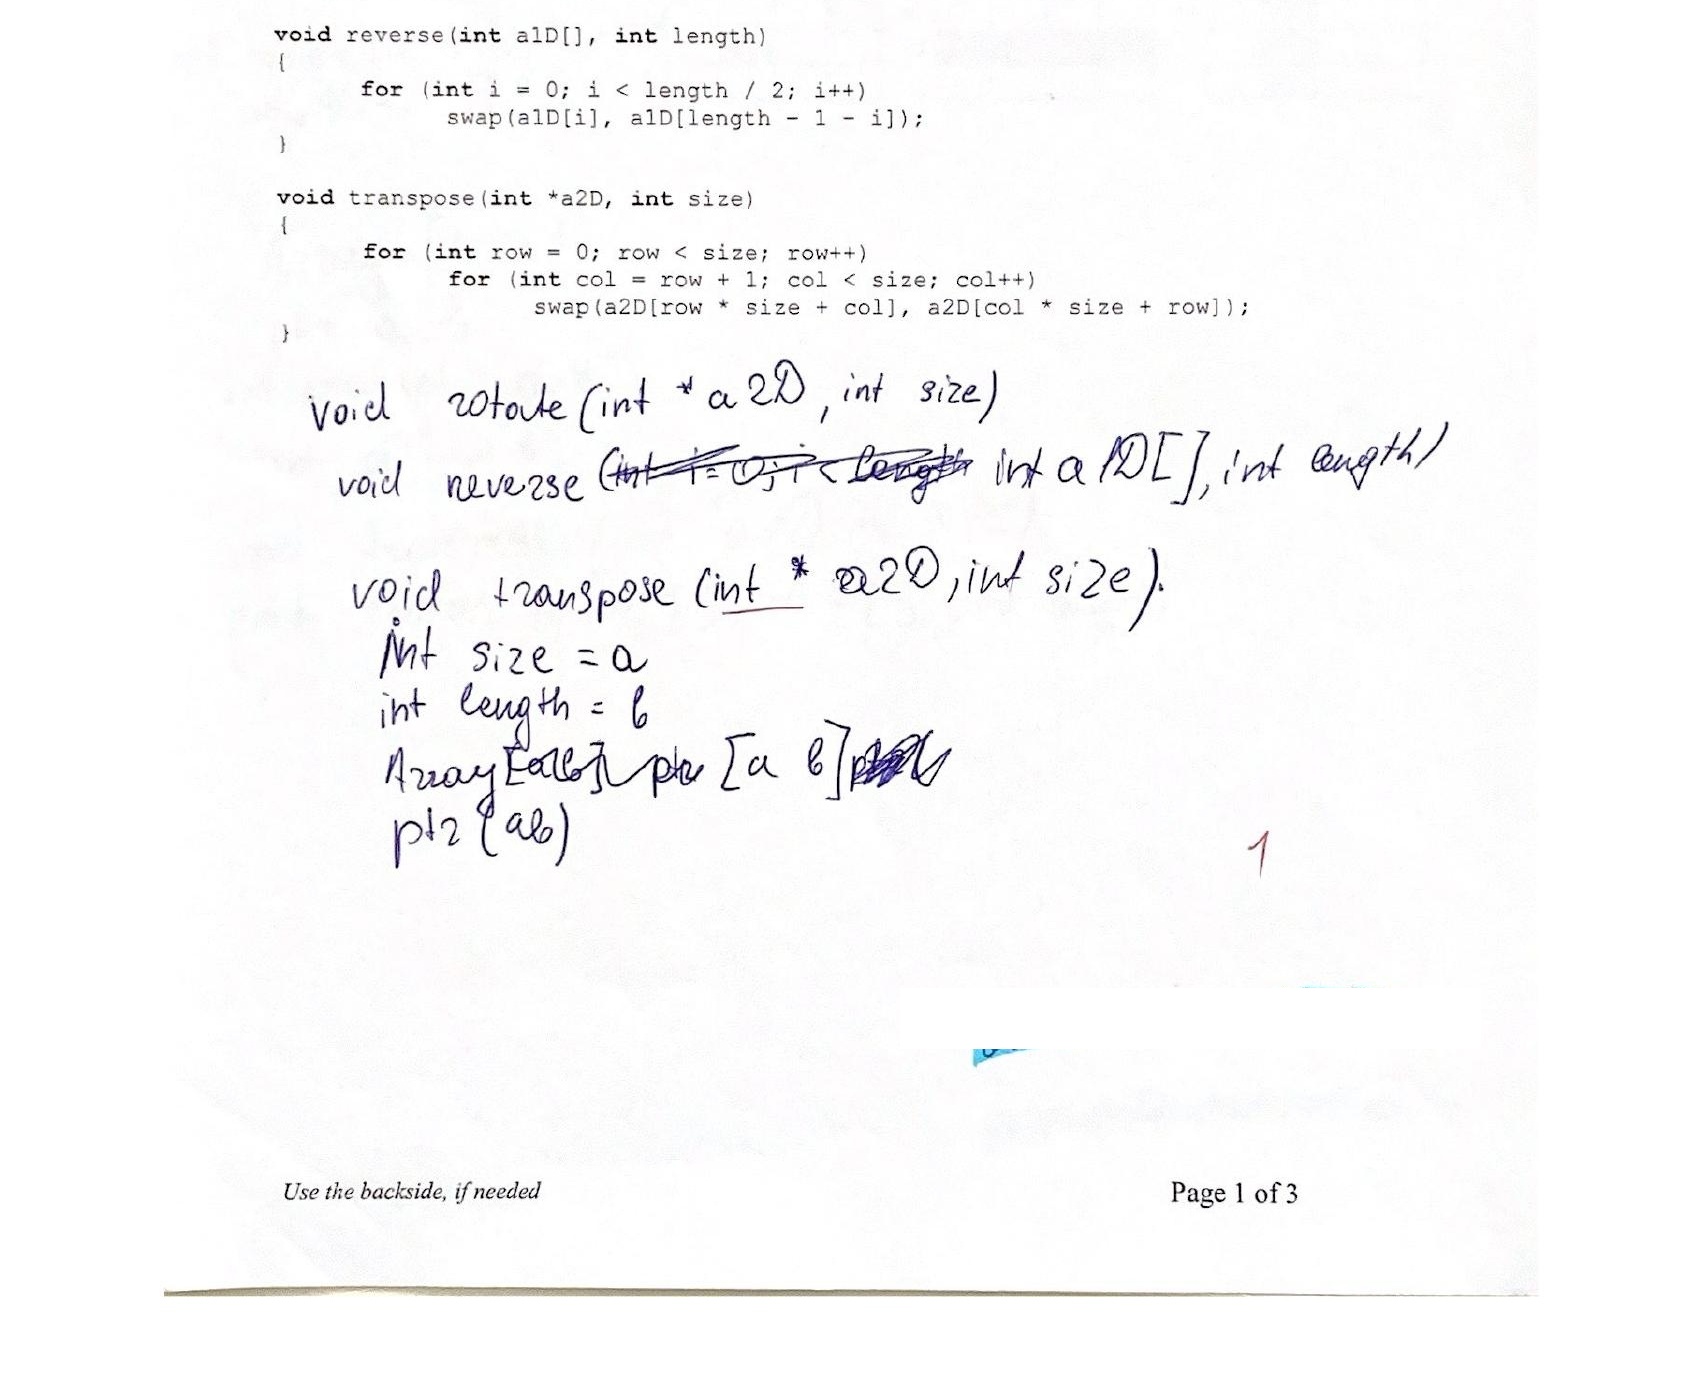 void reverse(int a1D[], int length)
{
for (int i = 0; i < length / 2; i++)
swap(a1D[i], a1D[length - 1 - i]);
}
void transpose(int *a2D, int size)
{
for (int row = 0; row < size; row++)
for (int col = row + 1; col < size; col++)
swap(a2D[row * size + col], a2D[col * size + row]);
}
void rotate (int * a2D, int size)
void reverse (int i = 0; i < length int a 1D[], int length)
void transpose (int * a2D, int size).
int size = a
int length = b
Array[ab] ptr [a b]
ptr (ab)
1
Use the backside, if needed
Page 1 of 3